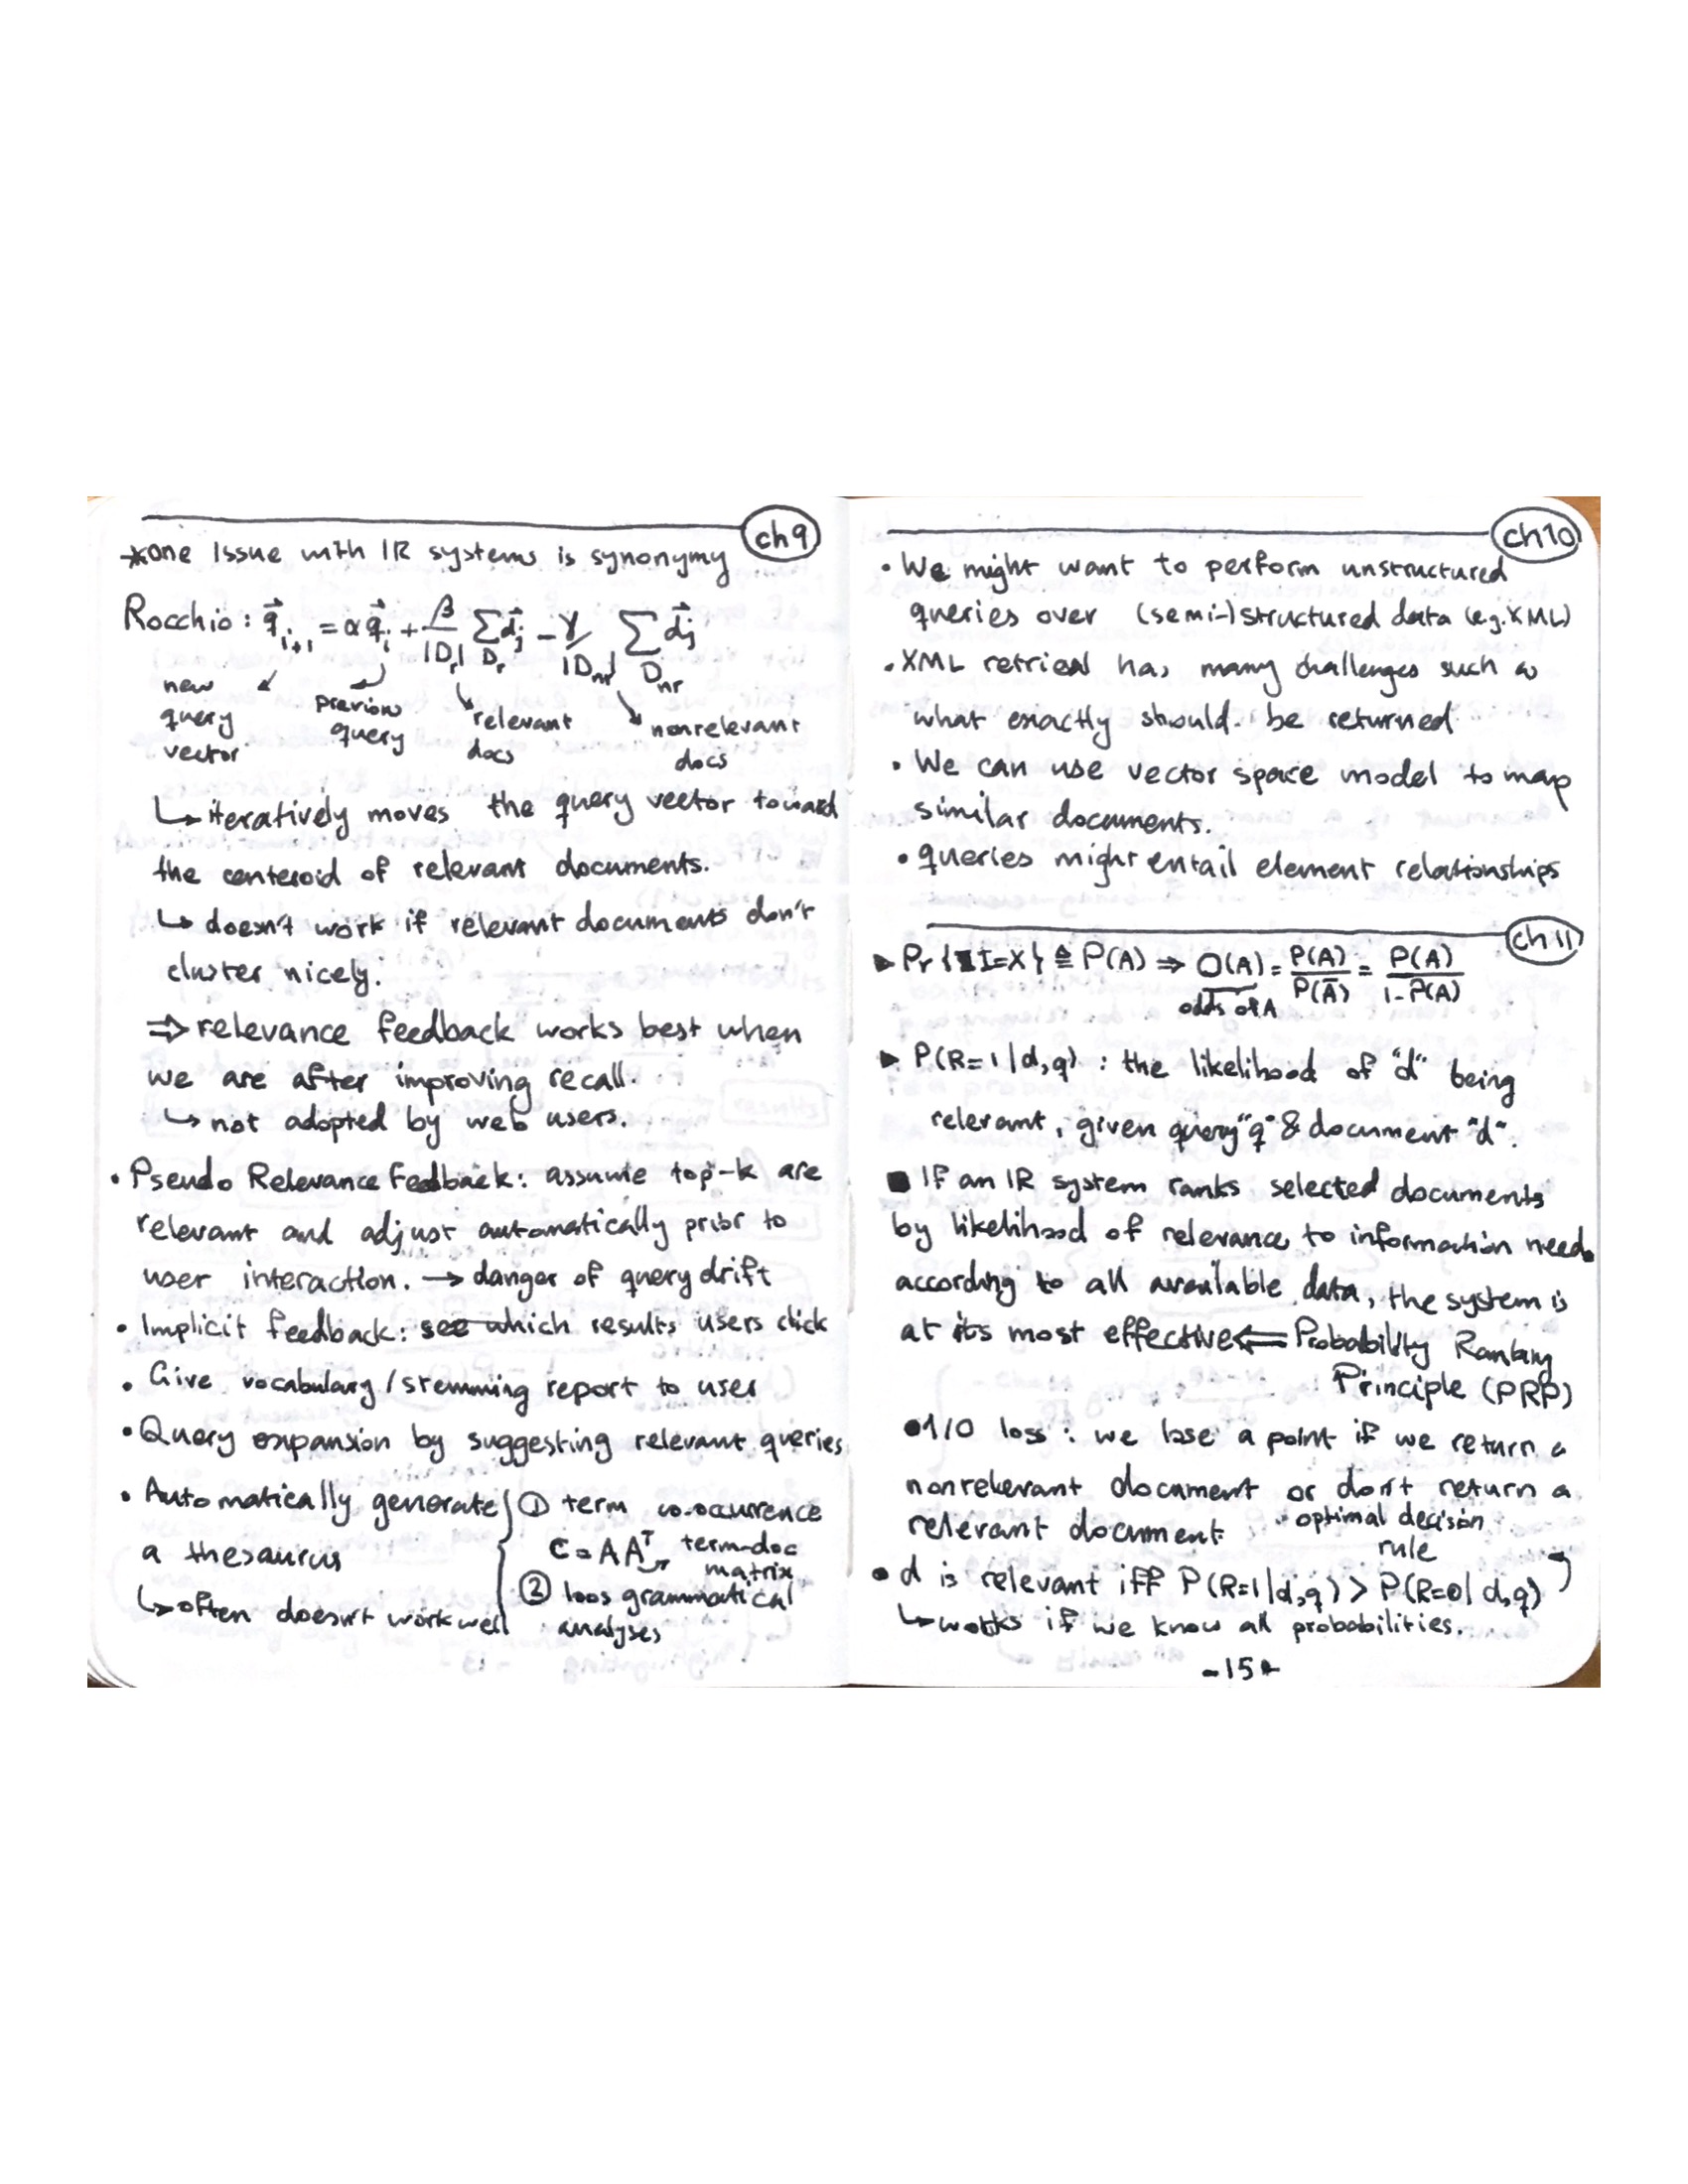 ch9
*one Issue with IR systems is synonymy
Rocchio: q⃗ᵢ₊₁ = α q⃗ᵢ + β/|Dr| Σ_Dr d⃗j − γ/|Dnr| Σ_Dnr d⃗j
new query vector
previous query
relevant docs
nonrelevant docs
↳ iteratively moves the query vector toward
the centeroid of relevant documents.
↳ doesn't work if relevant documents don't
cluster nicely.
⇒ relevance feedback works best when
we are after improving recall.
↳ not adopted by web users.
• Pseudo Relevance Feedback: assume top-k are
relevant and adjust automatically prior to
user interaction. → danger of query drift
• Implicit feedback: see which results users click
• Give vocabulary/stemming report to user
• Query expansion by suggesting relevant queries
• Automatically generate { ① term co-occurrence
a thesaurus
C = AAᵀ → term-doc
matrix
② loos grammatical
↳ often doesn't work well
analyses
ch10
• We might want to perform unstructured
queries over (semi-)structured data (e.g. XML)
• XML retrieval has many challenges such as
what exactly should be returned
• We can use vector space model to map
similar documents.
• queries might entail element relationships
ch11
▶ Pr{I=X} ≙ P(A) ⇒ O(A) = P(A)/P(Ā) = P(A)/1-P(A)
odds of A
▶ P(R=1|d,q) : the likelihood of "d" being
relevant, given query "q" & document "d".
■ If an IR system ranks selected documents
by likelihood of relevance to information need
according to all available data, the system is
at its most effective ⇐ Probability Ranking
Principle (PRP)
• 1/0 loss : we lose a point if we return a
nonrelevant document or don't return a
relevant document
optimal decision
rule
• d is relevant iff P(R=1|d,q) > P(R=0|d,q)
↳ works if we know all probabilities.
-15-